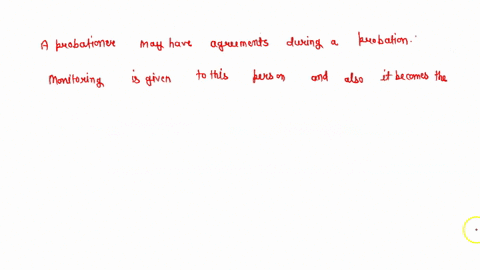 A probationer may have agreements during a probation.
Monitoring is given to this person and also it becomes the